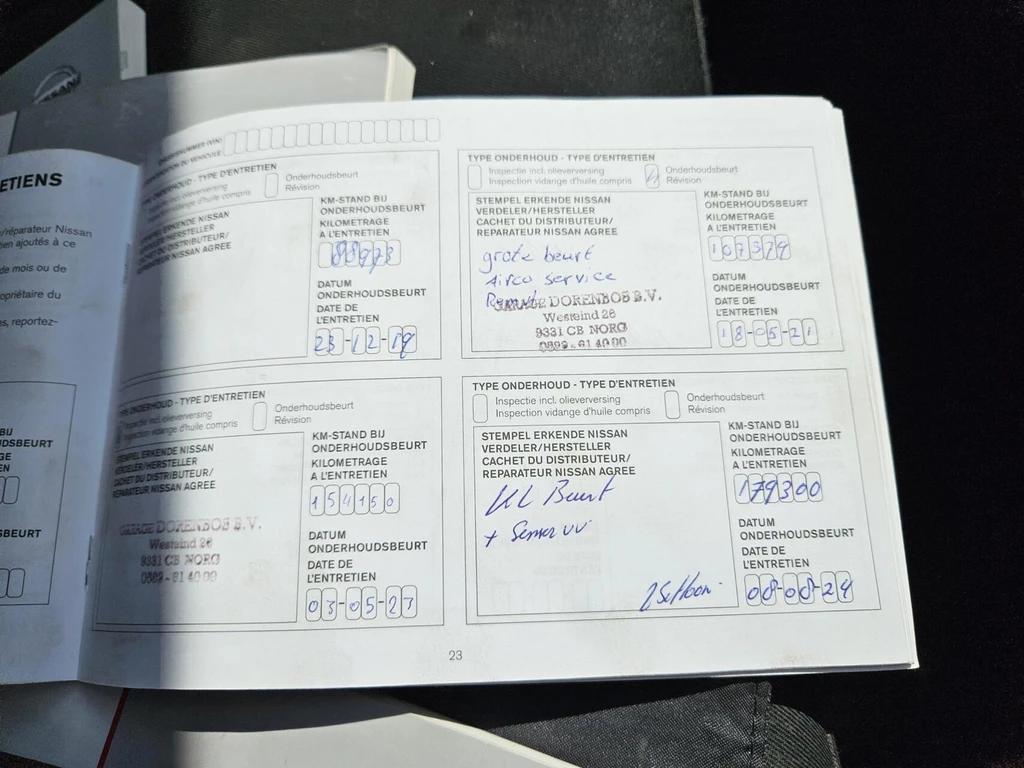 NISSAN
ETIENS
/réparateur Nissan
tien ajoutés à ce
de mois ou de
propriétaire du
es, reportez-
TYPE ONDERHOUD - TYPE D'ENTRETIEN
Inspectie incl. olieverversing
Inspection vidange d'huile compris
Onderhoudsbeurt
Révision
STEMPEL ERKENDE NISSAN
VERDELER/HERSTELLER
CACHET DU DISTRIBUTEUR/
REPARATEUR NISSAN AGREE
KM-STAND BIJ
ONDERHOUDSBEURT
KILOMETRAGE
A L'ENTRETIEN
88973
DATUM
ONDERHOUDSBEURT
DATE DE
L'ENTRETIEN
23-12-19
TYPE ONDERHOUD - TYPE D'ENTRETIEN
Inspectie incl. olieverversing
Inspection vidange d'huile compris
Onderhoudsbeurt
Révision
STEMPEL ERKENDE NISSAN
VERDELER/HERSTELLER
CACHET DU DISTRIBUTEUR/
REPARATEUR NISSAN AGREE
grote beurt
Airco service
GARAGE DORENBOS B.V.
Westeind 26
9331 CB NORG
0592-61 40 00
KM-STAND BIJ
ONDERHOUDSBEURT
KILOMETRAGE
A L'ENTRETIEN
107379
DATUM
ONDERHOUDSBEURT
DATE DE
L'ENTRETIEN
18-05-21
TYPE ONDERHOUD - TYPE D'ENTRETIEN
Inspectie incl. olieverversing
Inspection vidange d'huile compris
Onderhoudsbeurt
Révision
STEMPEL ERKENDE NISSAN
VERDELER/HERSTELLER
CACHET DU DISTRIBUTEUR/
REPARATEUR NISSAN AGREE
GARAGE DORENBOS B.V.
Westeind 26
9331 CB NORG
0592-61 40 00
KM-STAND BIJ
ONDERHOUDSBEURT
KILOMETRAGE
A L'ENTRETIEN
154150
DATUM
ONDERHOUDSBEURT
DATE DE
L'ENTRETIEN
03-05-23
TYPE ONDERHOUD - TYPE D'ENTRETIEN
Inspectie incl. olieverversing
Inspection vidange d'huile compris
Onderhoudsbeurt
Révision
STEMPEL ERKENDE NISSAN
VERDELER/HERSTELLER
CACHET DU DISTRIBUTEUR/
REPARATEUR NISSAN AGREE
KL Beurt
+
KM-STAND BIJ
ONDERHOUDSBEURT
KILOMETRAGE
A L'ENTRETIEN
179300
DATUM
ONDERHOUDSBEURT
DATE DE
L'ENTRETIEN
08-08-24
23